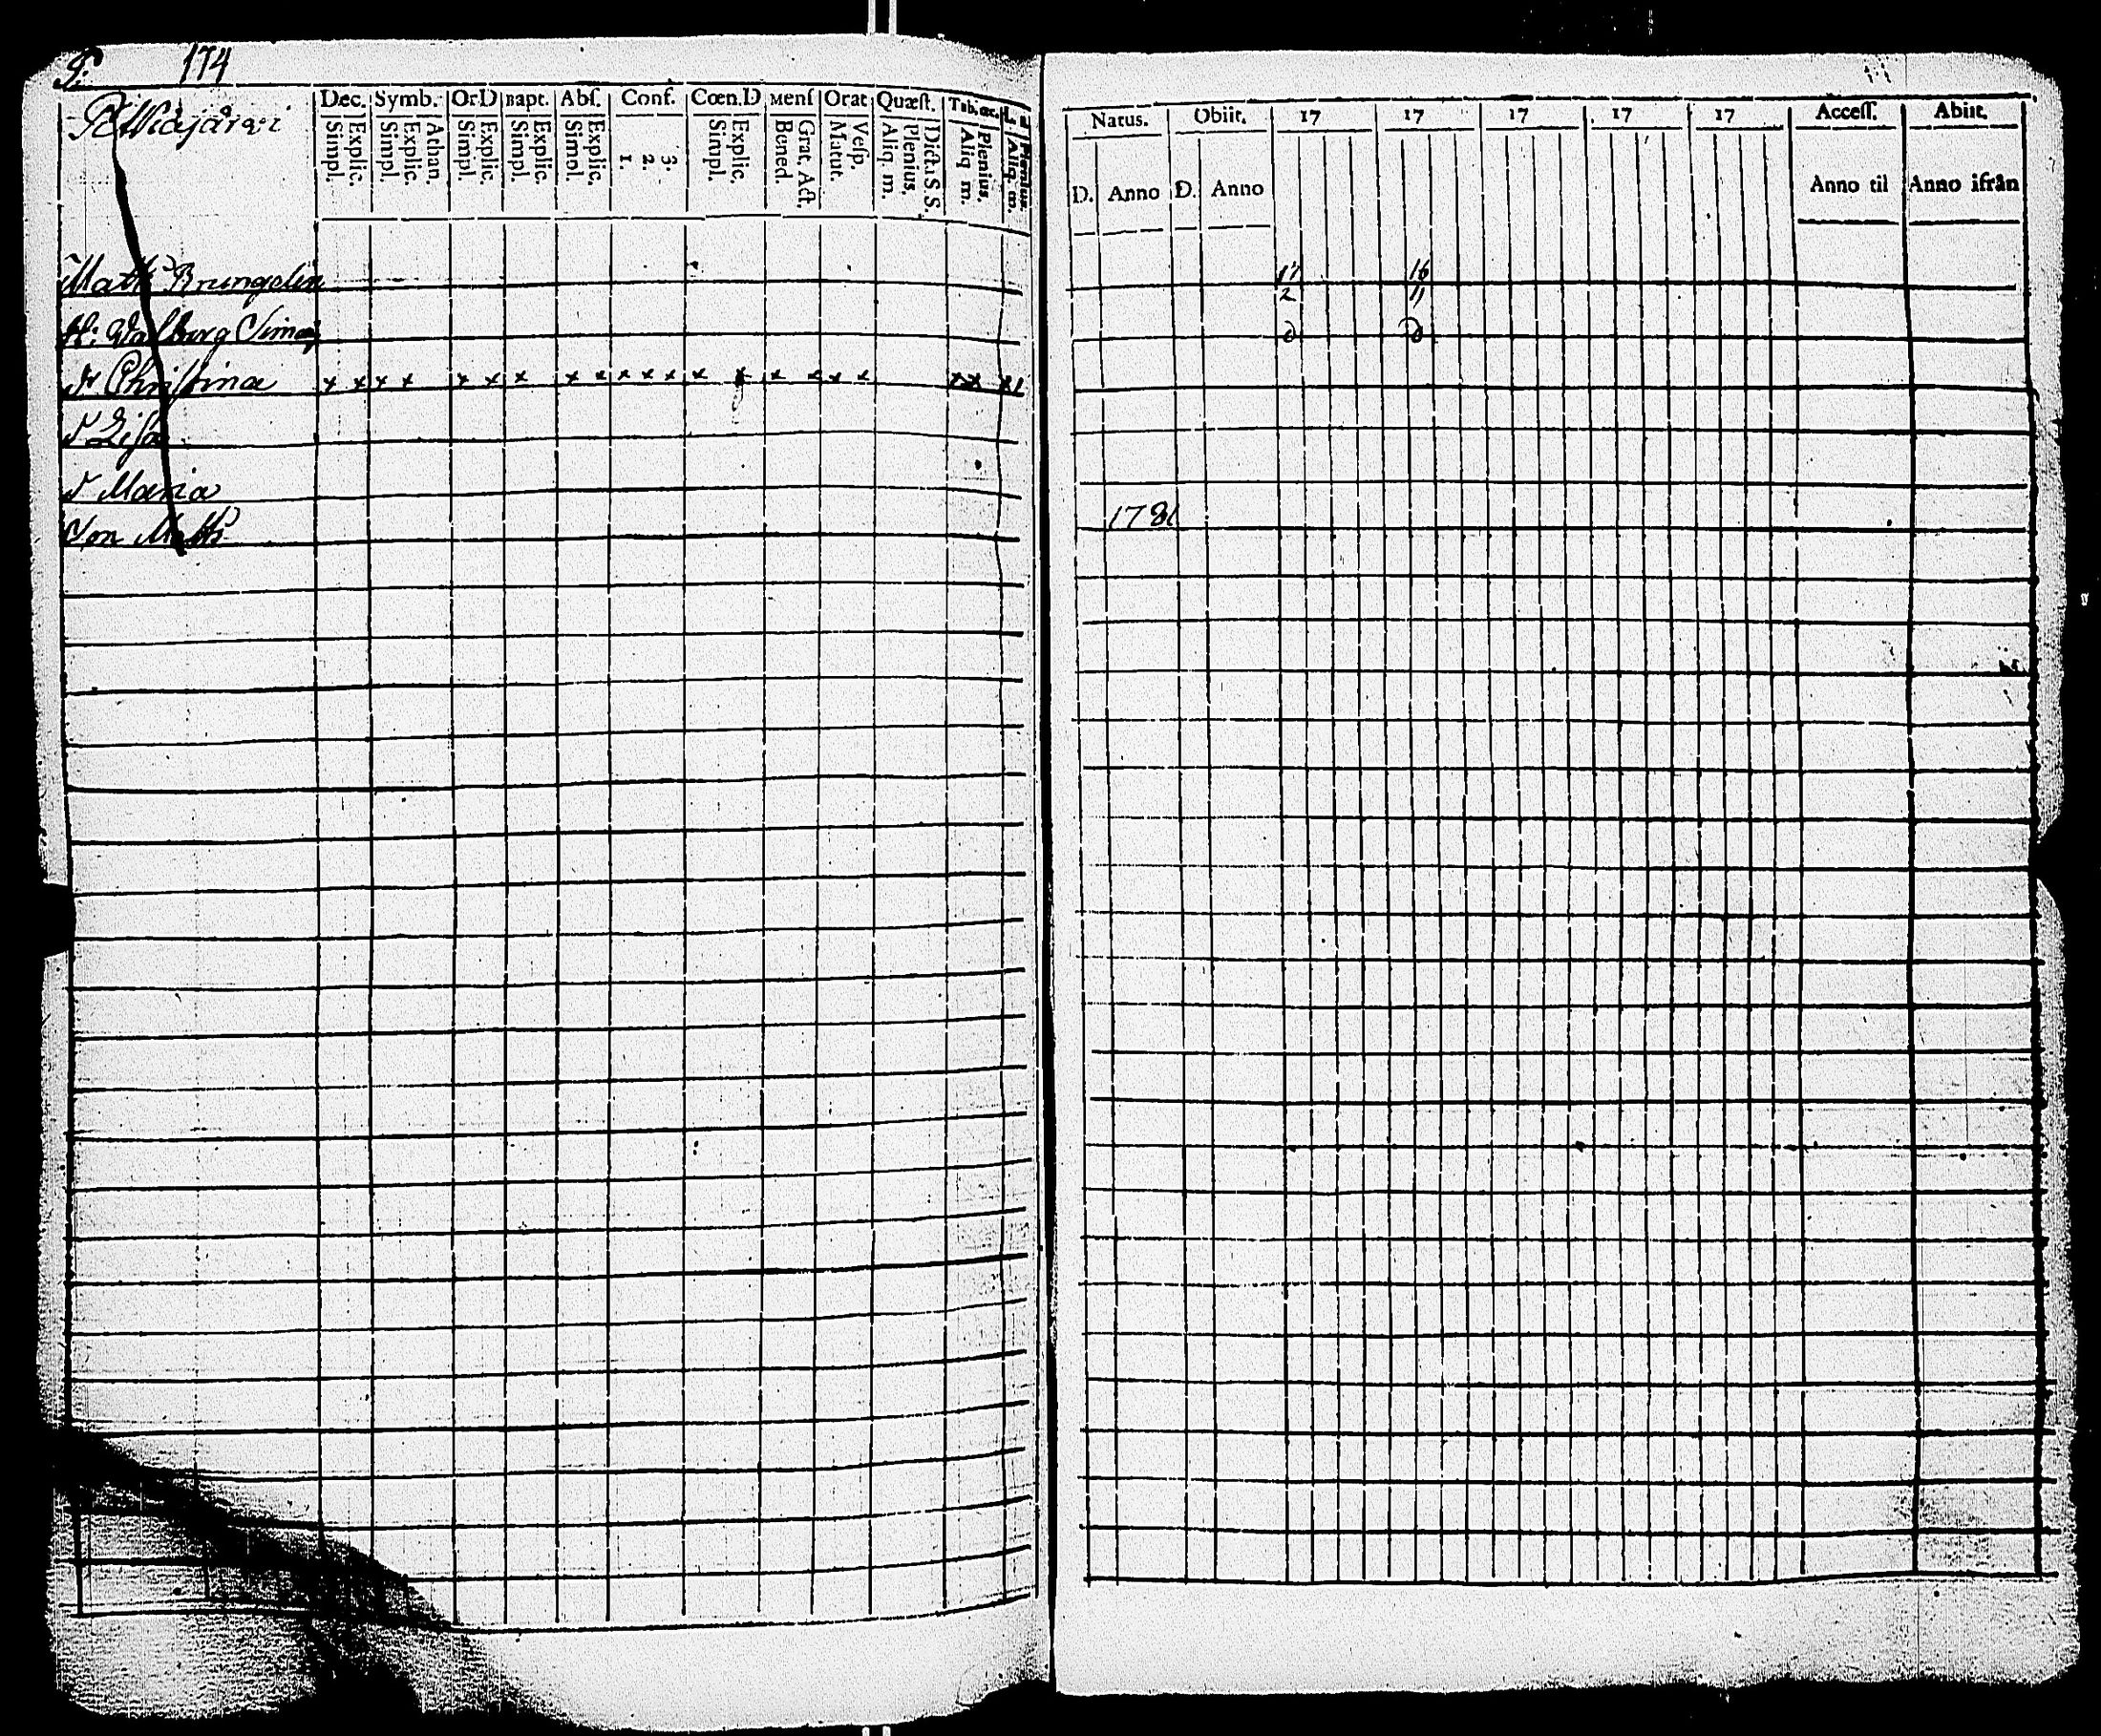 P. 174
Pitkäjärvi
Dec. Symb. Or.D Bapt. Abſ. Conf. Cœn.D Menſ Orat Quæſt. Tab. œc.
Simpl. Explic. Simpl. Explic. Athan. Simpl. Explic. Simpl. Explic. Simpl. Explic. 1. 2. 3. Simpl. Explic. Bened. Grat. Act. Matut. Veſp. Aliq. m. Plenius. Dicta S. S. Aliq. m. Plenius. Aliq. m. Plenius.
Natus. Obiit. 17 17 17 17 17 Acceſſ. Abiit.
D. Anno D. Anno Anno til Anno ifrån
Matts Brungelin 17 16
2 11
H: Walborg Simon
dr Christina x x x x x x x x x x x x x x x x x x x x
d Lisa
d Maria
Son Matts 1781